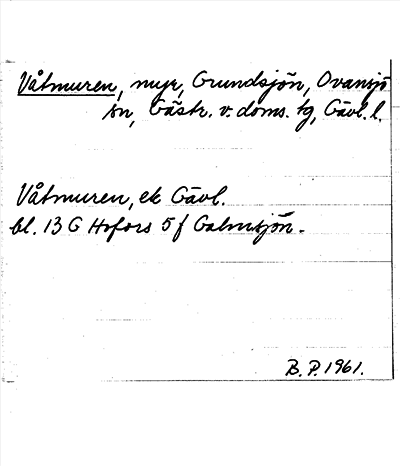 Våtmuren, myr, Grundsjön, Ovansjö
sn, Gästr. v. doms. tg, Gävl. l.
Våtmuren, ek Gävl.
bl. 13 G Hofors 5 f Galmsjön.
B. P. 1961.